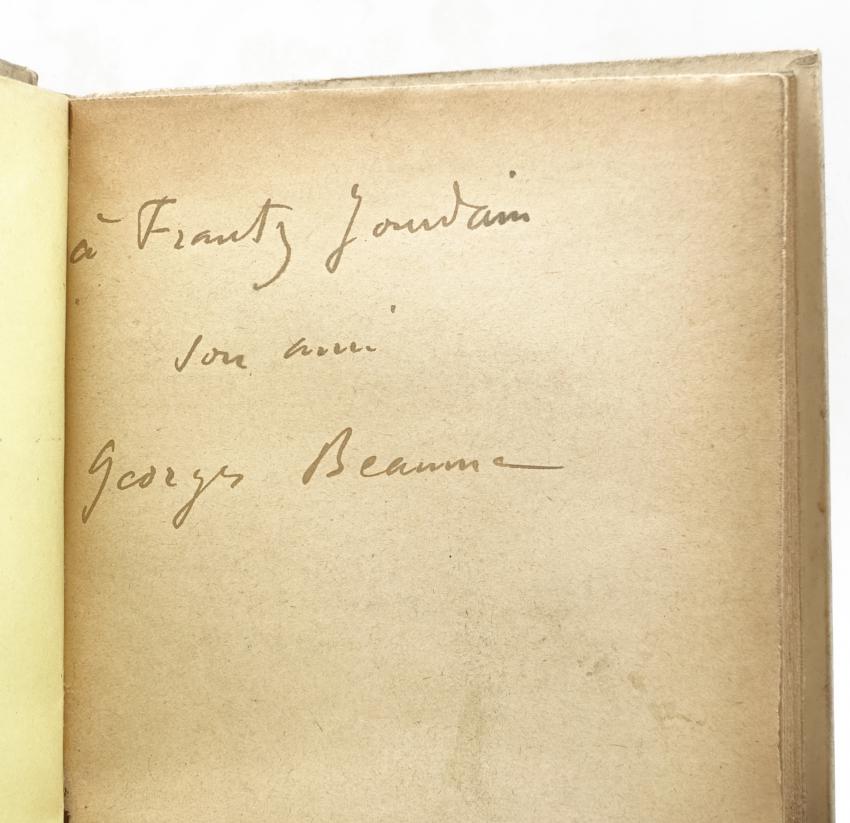 à Frantz Jourdain
son ami
Georges Beaume